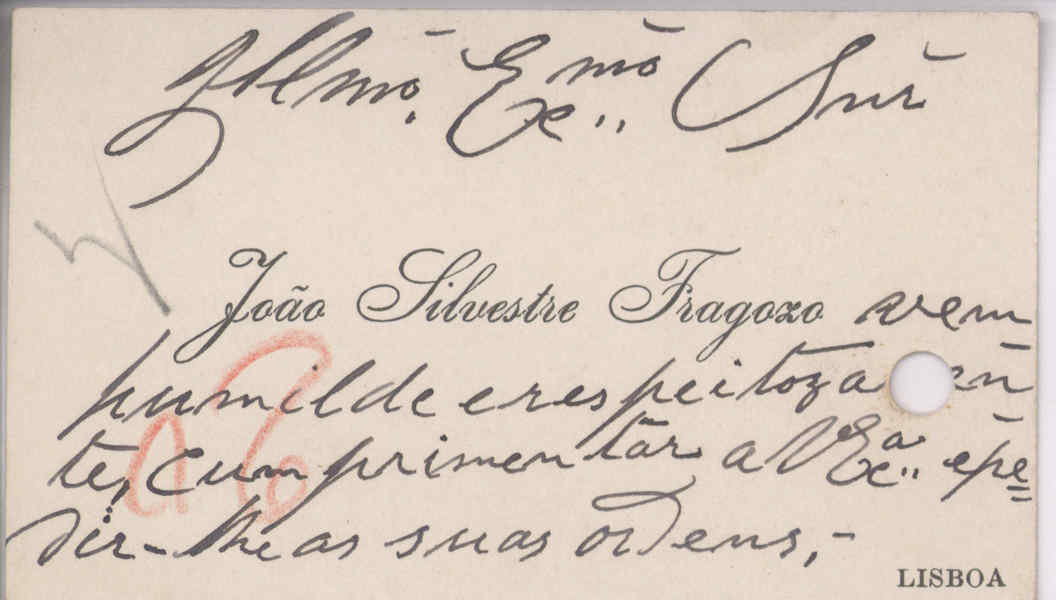 Illmo. Exmo.. Snr
João Silvestre Fragozo vem
humilde e respeitoza en
te, cumprimentar a V Exa.. e pe=
dir-lhe as suas ordens,-
LISBOA